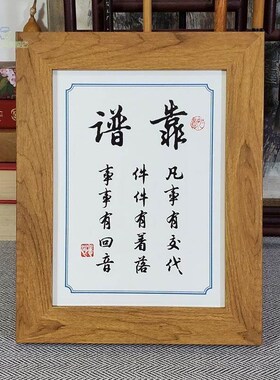 靠谱
凡事有交代
件件有着落
事事有回音